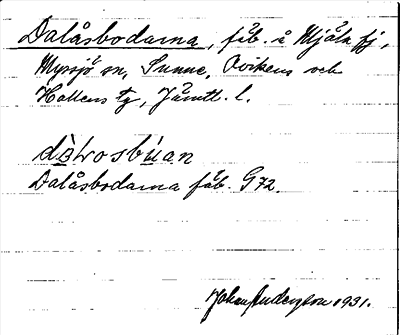 Dalåsbodarna, fäb. å Mjälk fj,
Myssjö sn, Sunne, Ovikens och
Hallens tg, Jämtl. l.
Dalåsbodarna fäb. G 72.
Johan Anderson 1931.